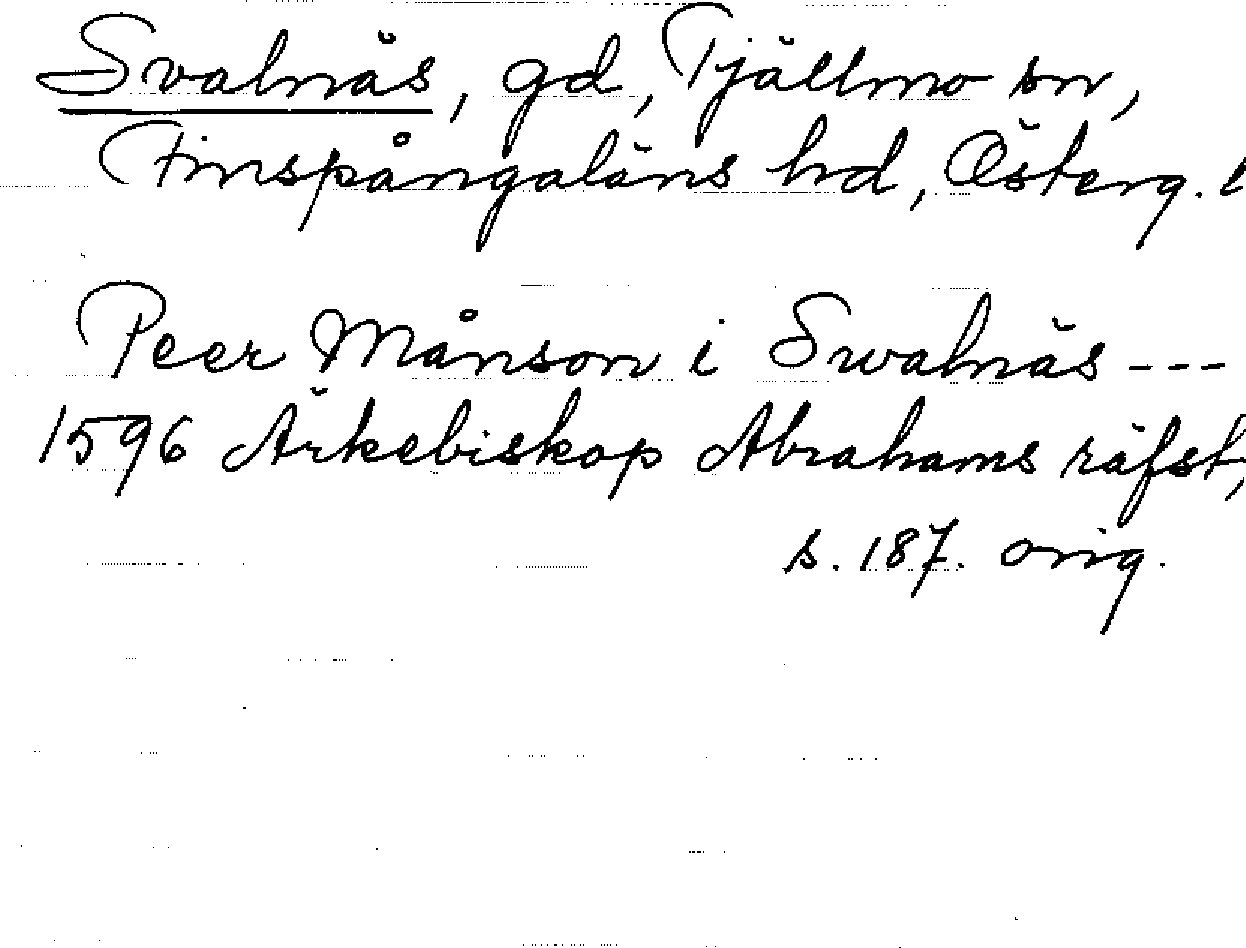 Svalnäs, gd, Tjällmo sn,
Finspångaläns hd, Österg. l
Peer Månson i Swalnäs ---
1596 Ärkebiskop Abrahams räfst,
s. 187. orig.